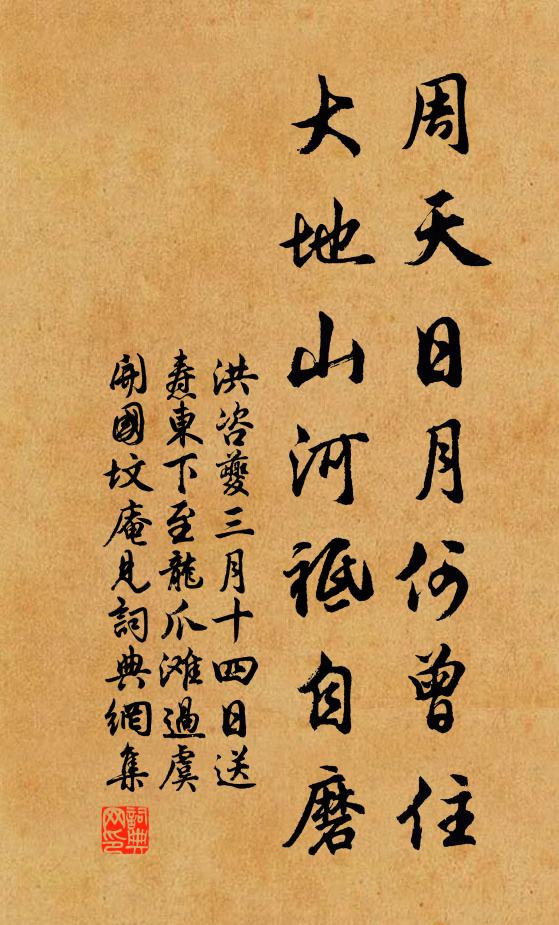 周天日月何曾住
大地山河祗自磨
洪咨夔三月十四日送
燾東下至龍爪滩過虞
開國坟庵見詞典網集
詞典网印